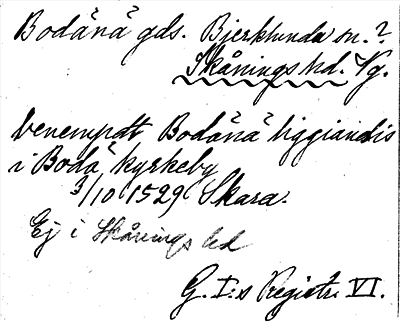 Bodänä gds. Bjerklunda sn.?
Skånings hd. Vg.
benempdt Bodänä liggiandis
i Bodä kyrkeby
3/10 1529 Skara.
Ej i Skånings hd
G. I:s Registr. VI.